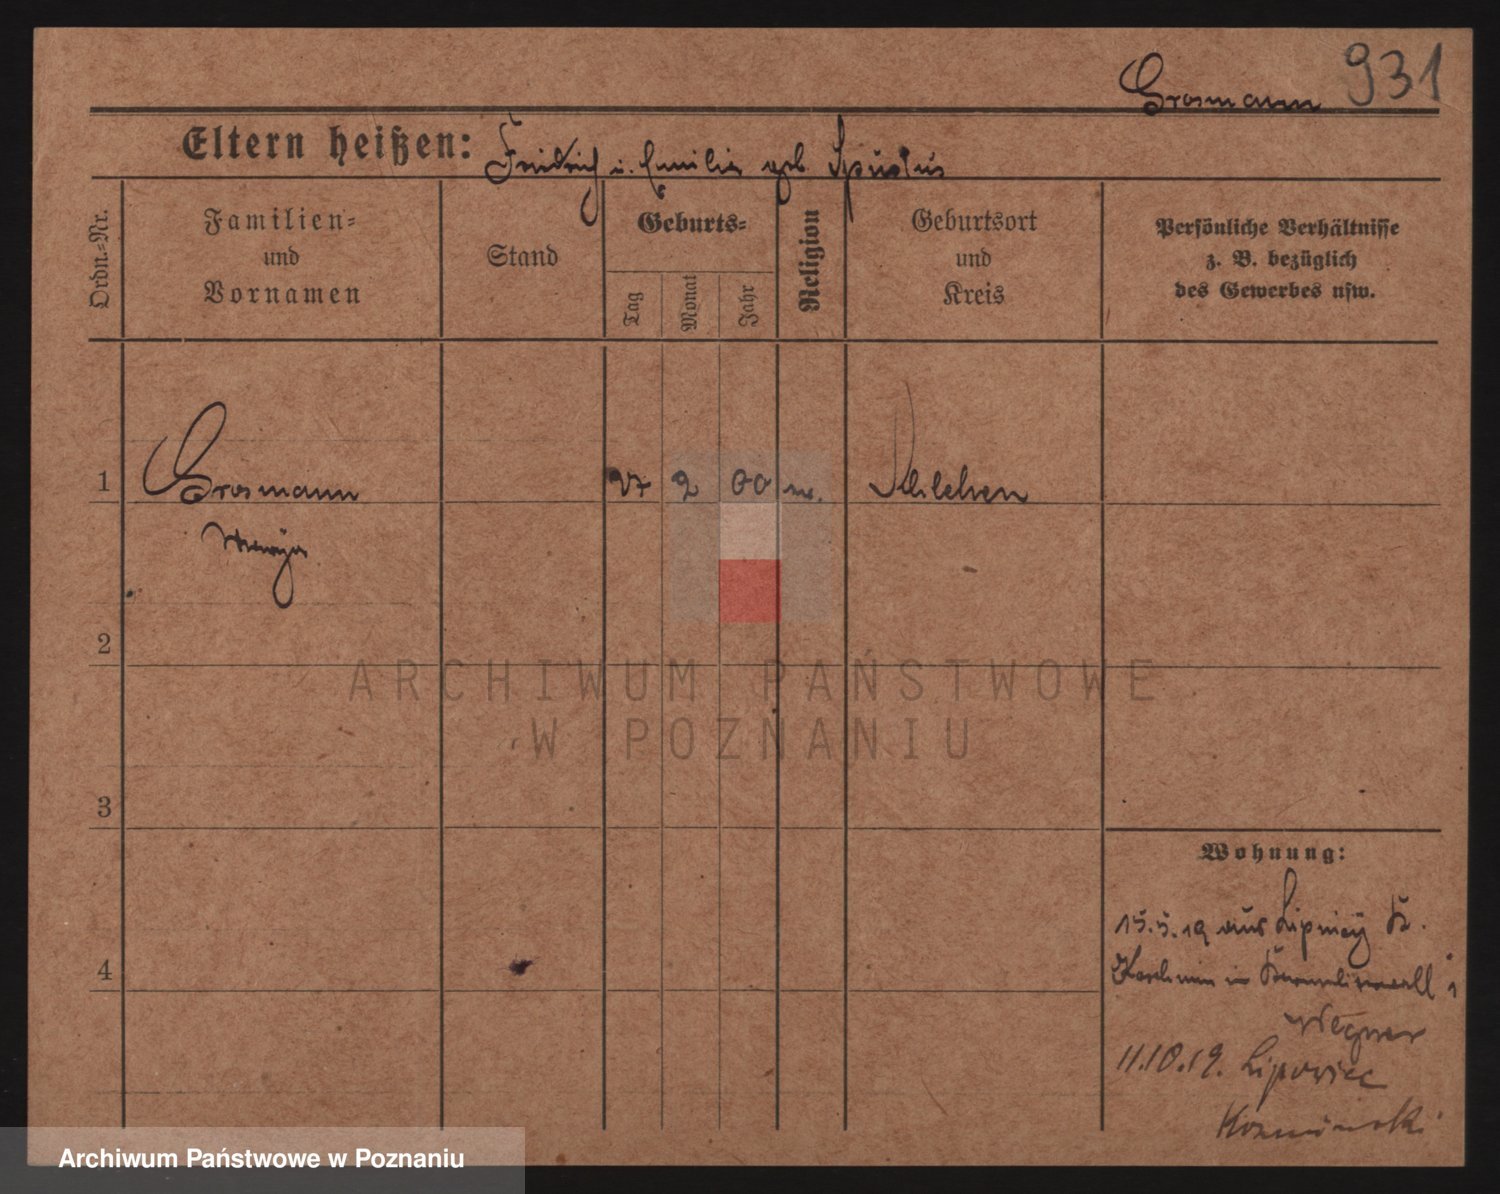 Grosmann 931
Eltern heißen: Friedrich u. Emilie geb.
Ordn.-Nr.
Familien-
und
Vornamen
Stand
Geburts-
Tag
Monat
Jahr
Religion
Geburtsort
und
Kreis
Persönliche Verhältnisse
z. B. bezüglich
des Gewerbes usw.
1 Grosmann 27 2 00
2
3
4
Wohnung:
15.5.19 aus
Wegner
11.10.19. Lipowiec
ARCHIWUM PAŃSTWOWE
W POZNANIU
Archiwum Państwowe w Poznaniu